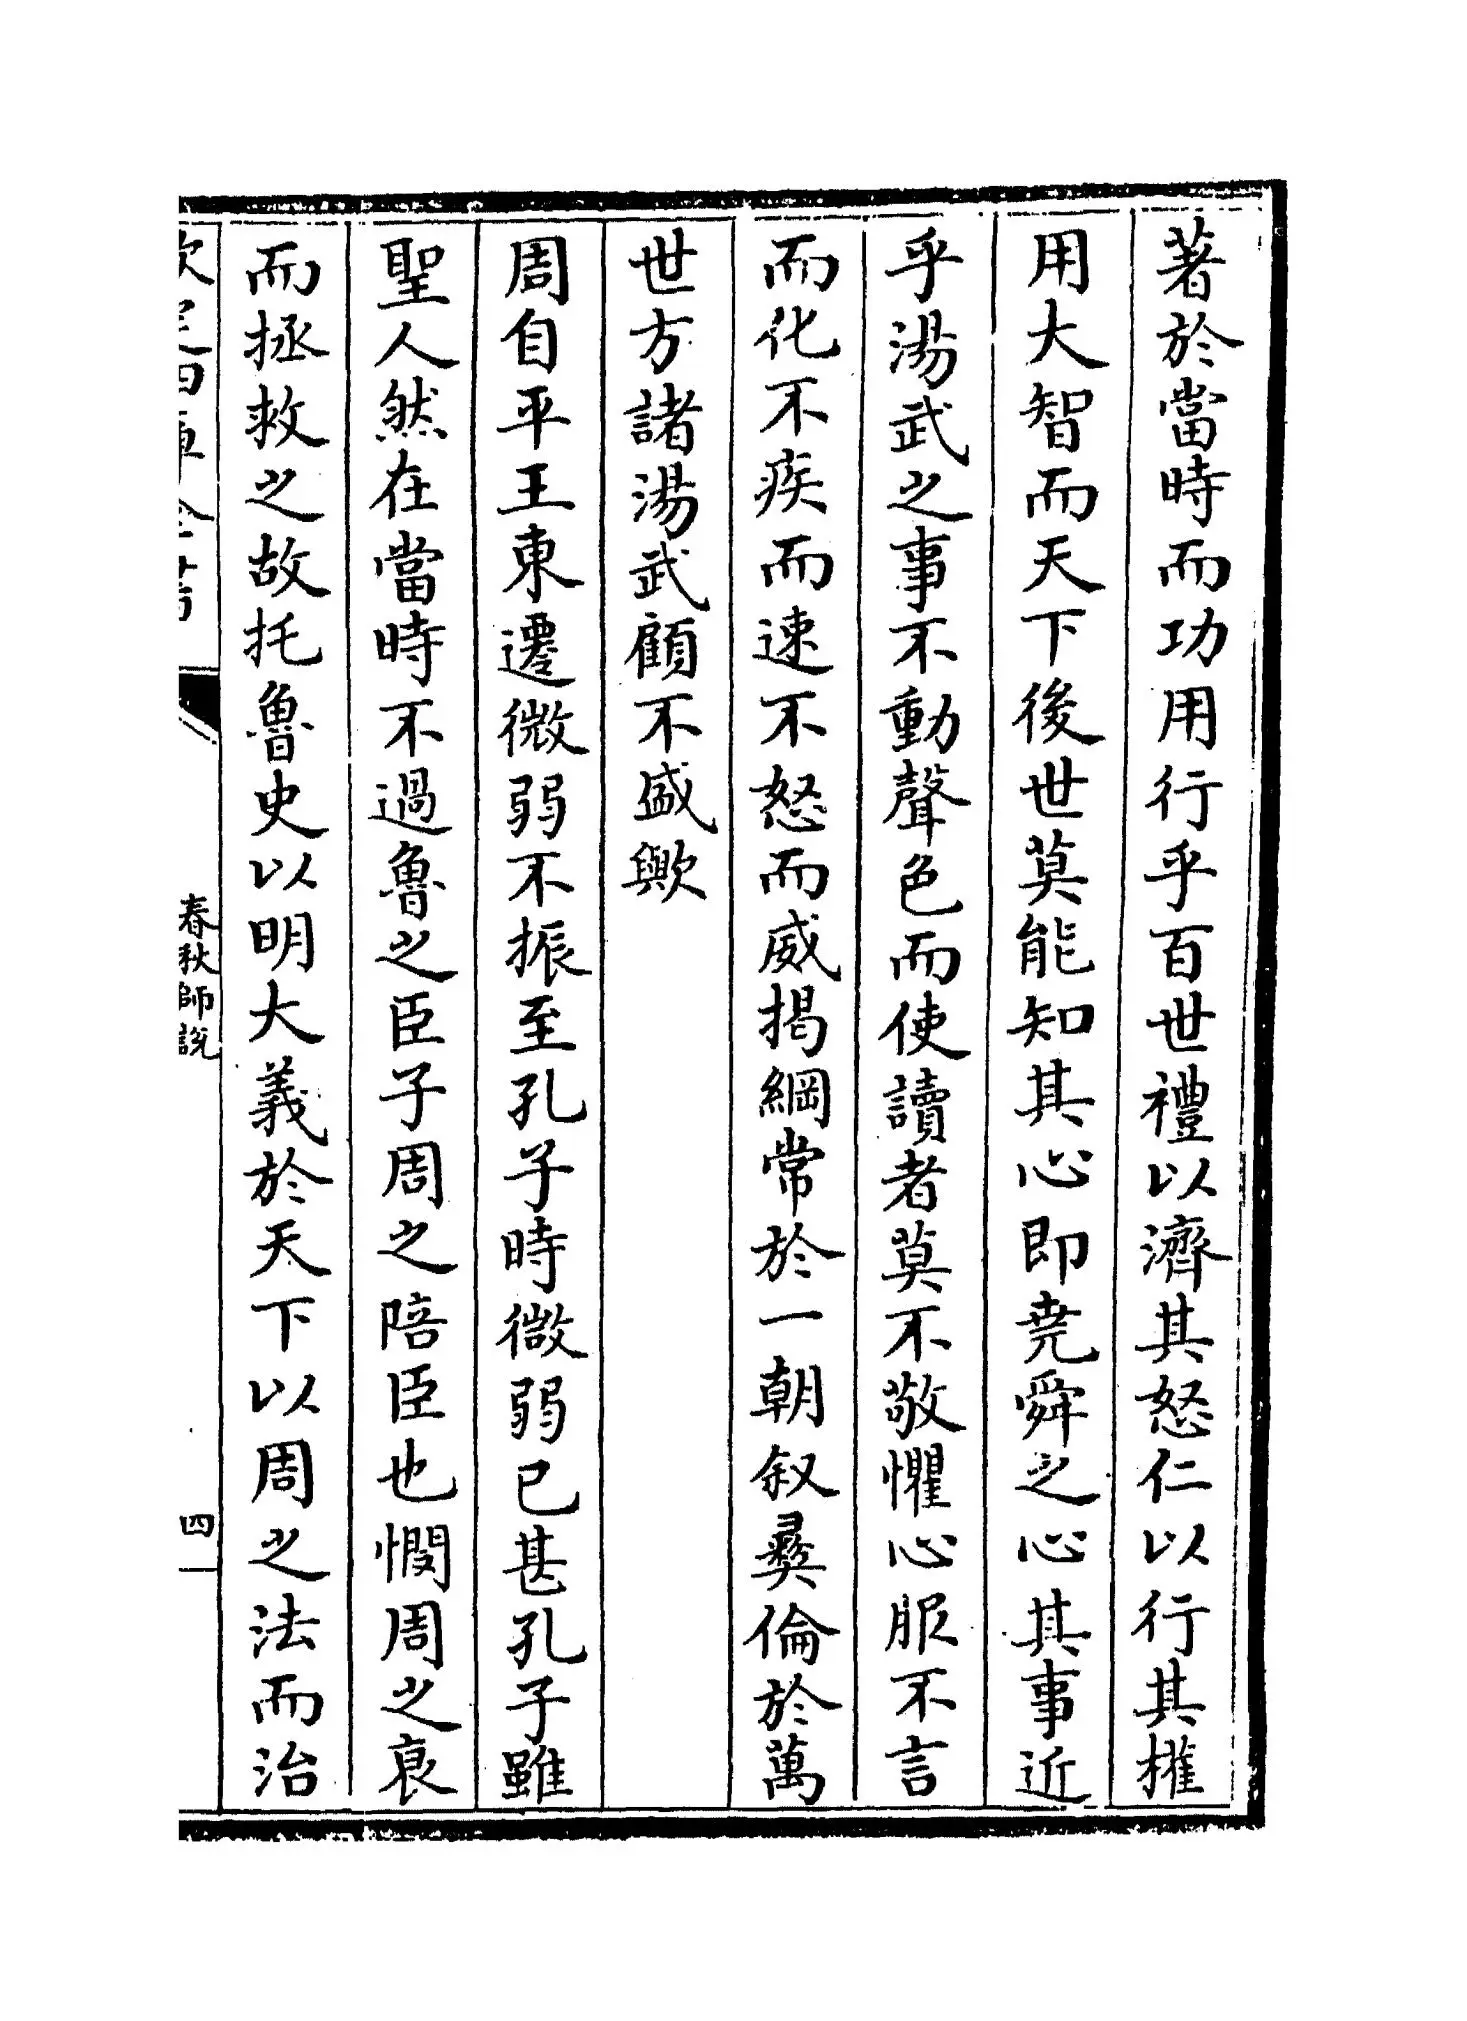 著於當時而功用行乎百世禮以濟其怒仁以行其權
用大智而天下後世莫能知其心即堯舜之心其事近
乎湯武之事不動聲色而使讀者莫不敬懼心服不言
而化不疾而速不怒而威揭綱常於一朝叙彛倫於萬
世方諸湯武顧不盛歟
周自平王東遷微弱不振至孔子時微弱已甚孔子雖
聖人然在當時不過魯之臣子周之陪臣也憫周之衰
而拯救之故托魯史以明大義於天下以周之法而治
欽定四庫全書
春秋師說
四